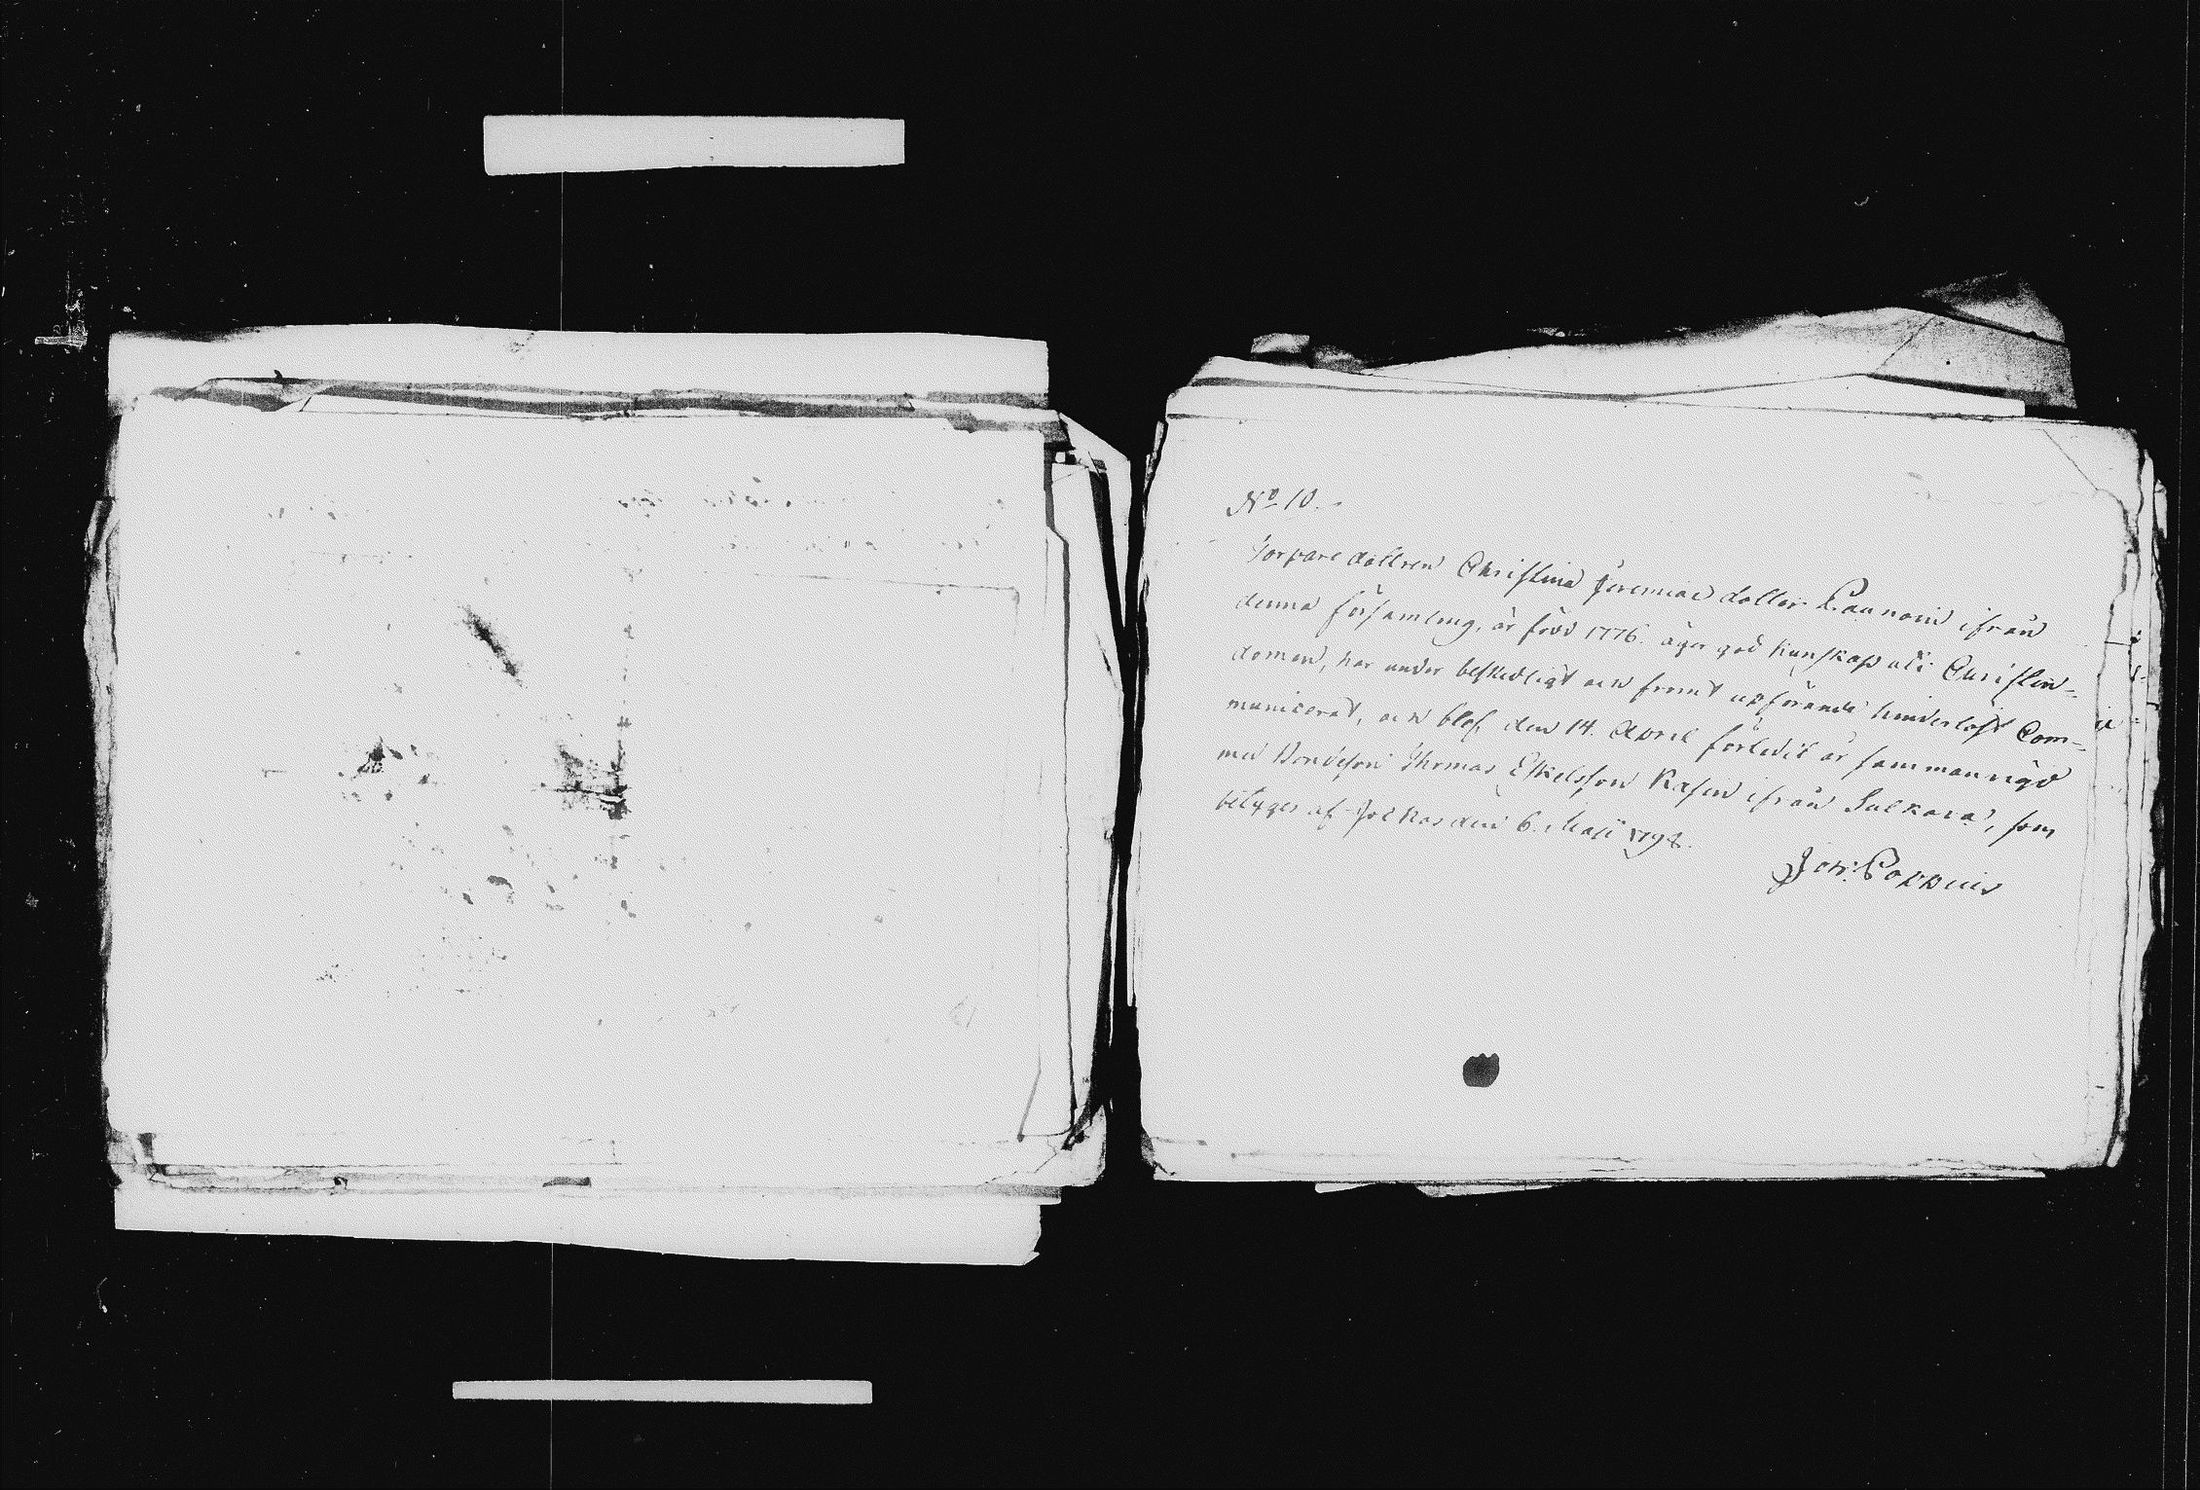 No 10.
Torpare dottren Christina Jeremiae dotter Paunoin ifrån
denna församling, är född 1776. äger god kunskap uti Christen=
domen, har under beskedligt och fromt upförande hinderlöst Com=
municerat, och blef den 14. April förledit år sammanvigd
med Bondeson Thomas Eskelsson Kasin ifrån Sulkava, som
betyges af Jockas den 6. Maji 1798.
Joh: Poppius